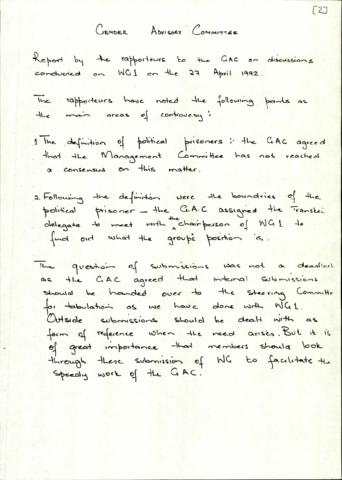 [2]
GENDER ADVISORY COMMITTEE
Report by the rapporteurs to the GAC on discussions
conducted on WG1 on the 27 April 1992.
The rapporteurs have noted the following points as
the main areas of controversy:
1 The definition of political prisoners: the GAC agreed
that the Management Committee has not reached
a consensus on this matter.
2. Following the definition were the boundries of the
political prisoner – the G.A.C assigned the Transkei
delegate to meet with the chairperson of WG1 to
find out what the groups position is.
The question of submissions was not a deadlock
as the GAC agreed that internal submissions
should be handed over to the Steering Committe
for tabulation as we have done with WG1.
Outside submissions should be dealt with as
form of reference when the need arises. But it is
of great importance that members should look
through these submission of WG to facilitate the
speedy work of the GAC.